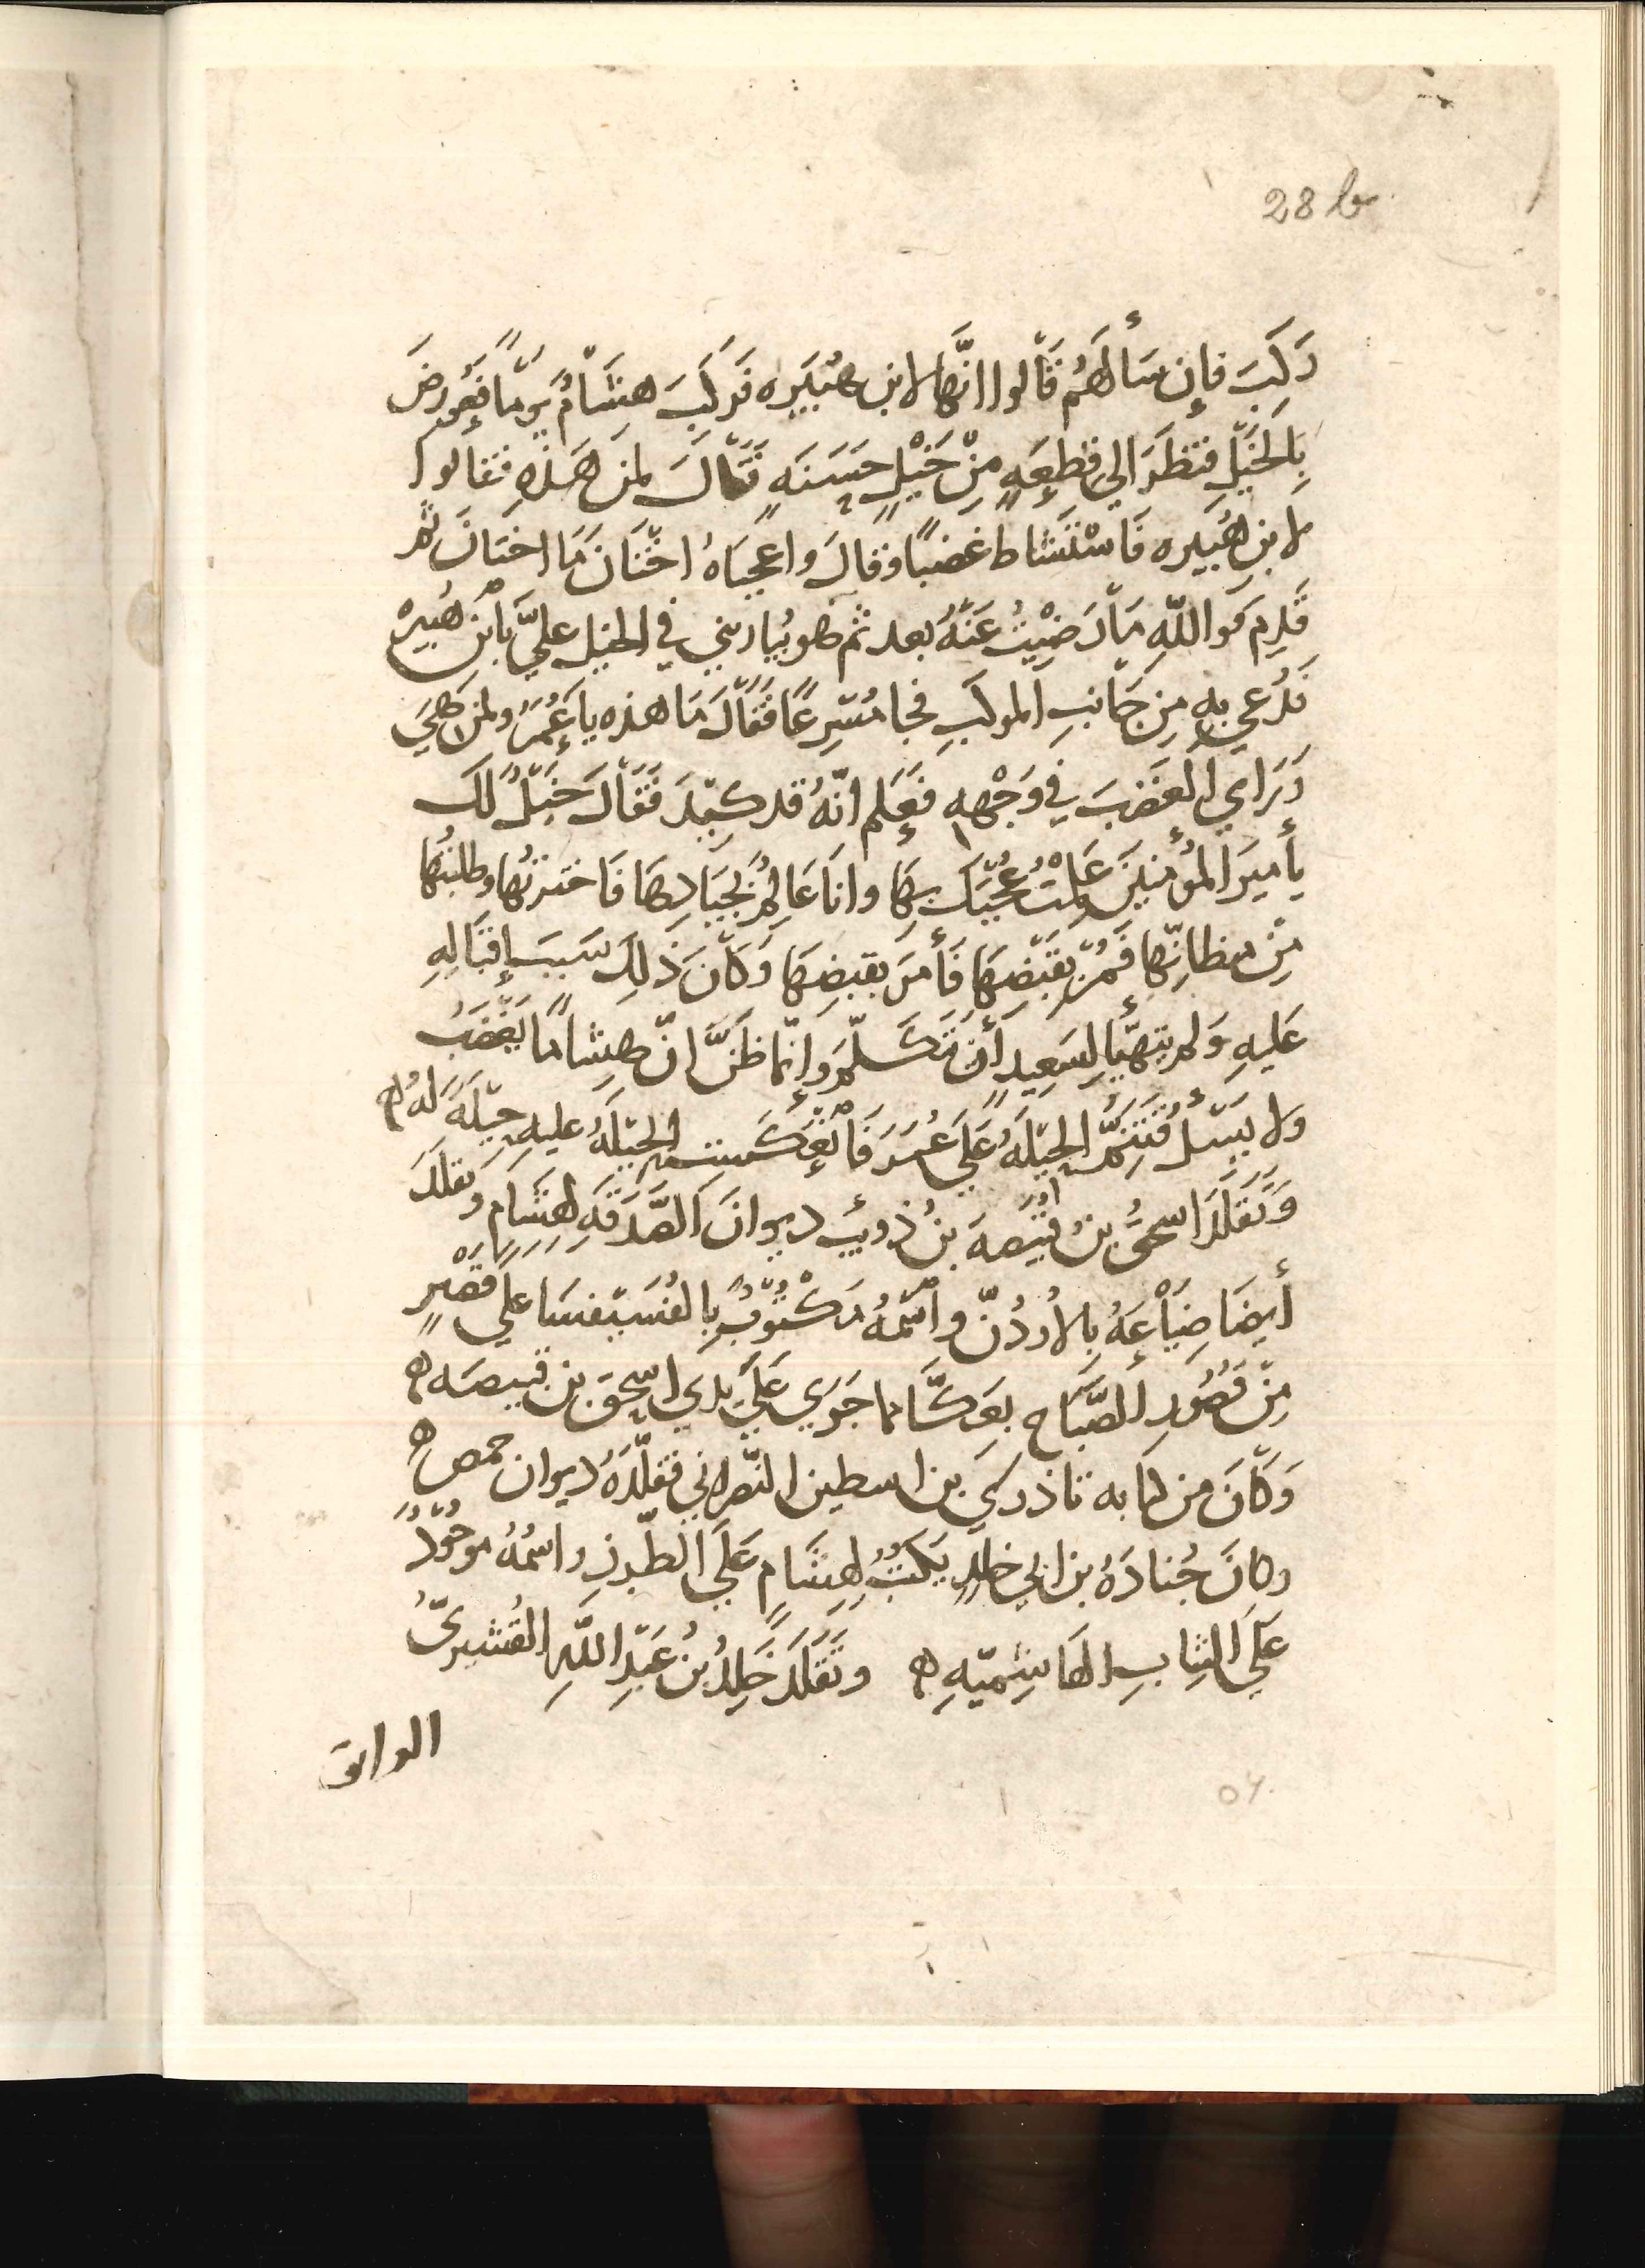 28 b
رَكِبَ فإِن سَأَلهُم قَالوا انّها لابن هُبَيره فَرَكِبَ هِشَامٌ يَومًا فَعُورِضَ
بِالخَيْلِ فنَظَرَ الي قِطعَهٍ مِنْ خَيْلٍ حَسَنَهٍ فَقَالَ لمَن هَذهِ فقالوا
لابن هُبَيره فَاسْتَشاطَ غضبًا وقال واعَجَبَاهُ اخْتَانَ مَا اختَانَ ثم
قَدِمَ فوَاللّهِ مَا رَضِيْتُ عَنْهُ بعد ثم هو يُبارِيني في الخيل عليَّ بابْنِ هُبَيرَه
فدُعِي بهِ مِن جَانبِ الموكَبِ فجا مُسْرِعًا فَقَالَ مَا هذه يا عُمَرُ ولمن هِيَ
وَرَاي الغَضَبَ في وَجْهِهِ فَعَلِم انّهُ قد كِيْدَ فَقَالَ خَيْلٌ لَكَ
يأَمِيَر المُؤمِنينَ عَلِمْتُ عُجْبَكَ بِهَا وانَا عَالِمٌ بِجِيَادِهَا فَاختَرتُها وطلبتُها
مِنْ مظانِّها فَمُرْ بقَبْضِهَا فَأَمَر بقبضِهَا وَكَانَ ذلِكَ سَبَبَ إِقبَالِهِ
عَليهِ وَلم يتهيّأ لِسَعِيدٍ أَن يَتَكَلَّمَ وَإِنّما ظَنَّ انّ هِشامًا يَغْضَبُ
ولا يَسْلُ فتتِمُّ الحِيْلَةُ عَلَي عُمَرَ فَانْعَكَسَتِ الحِيْلَهُ عليهِ حِيْلَةً لهُ ه
وَتَقَلَّدَ اسحقُ بنُ قَبِيْصَهَ بنُ ذويبٍ ديوانَ الصَّدَقَهِ لِهِشَامٍ وَتقلَّدَ
أَيضَا ضِيَاعَهُ بِالأُردُنّ واسْمُهُ مَكْتُوْبٌ بِالفُسَيْفسَا علي قَصْرٍ
مِنْ قصُورِ الصِّبَاح بِعَكَّا مما جَرَي عَلَي يدي اسحق بن قبيصَه ه
وَكَانَ من كتابه تاذري بن اسطين النّصراني فقلّدَهُ ديوان حمص ه
وكانَ جُنادَةُ بن ابي خالدٍ يَكْتُبُ لِهِشَامٍ عَلَي الطّرزِ واسمُهُ موجُوْدٌ
عَلَي الثيابِ الهاشِمِيّهِ ه وتَقَلَّدَ خَالِدُ بنُ عَبْدِ اللّهِ القُشيرِيُّ